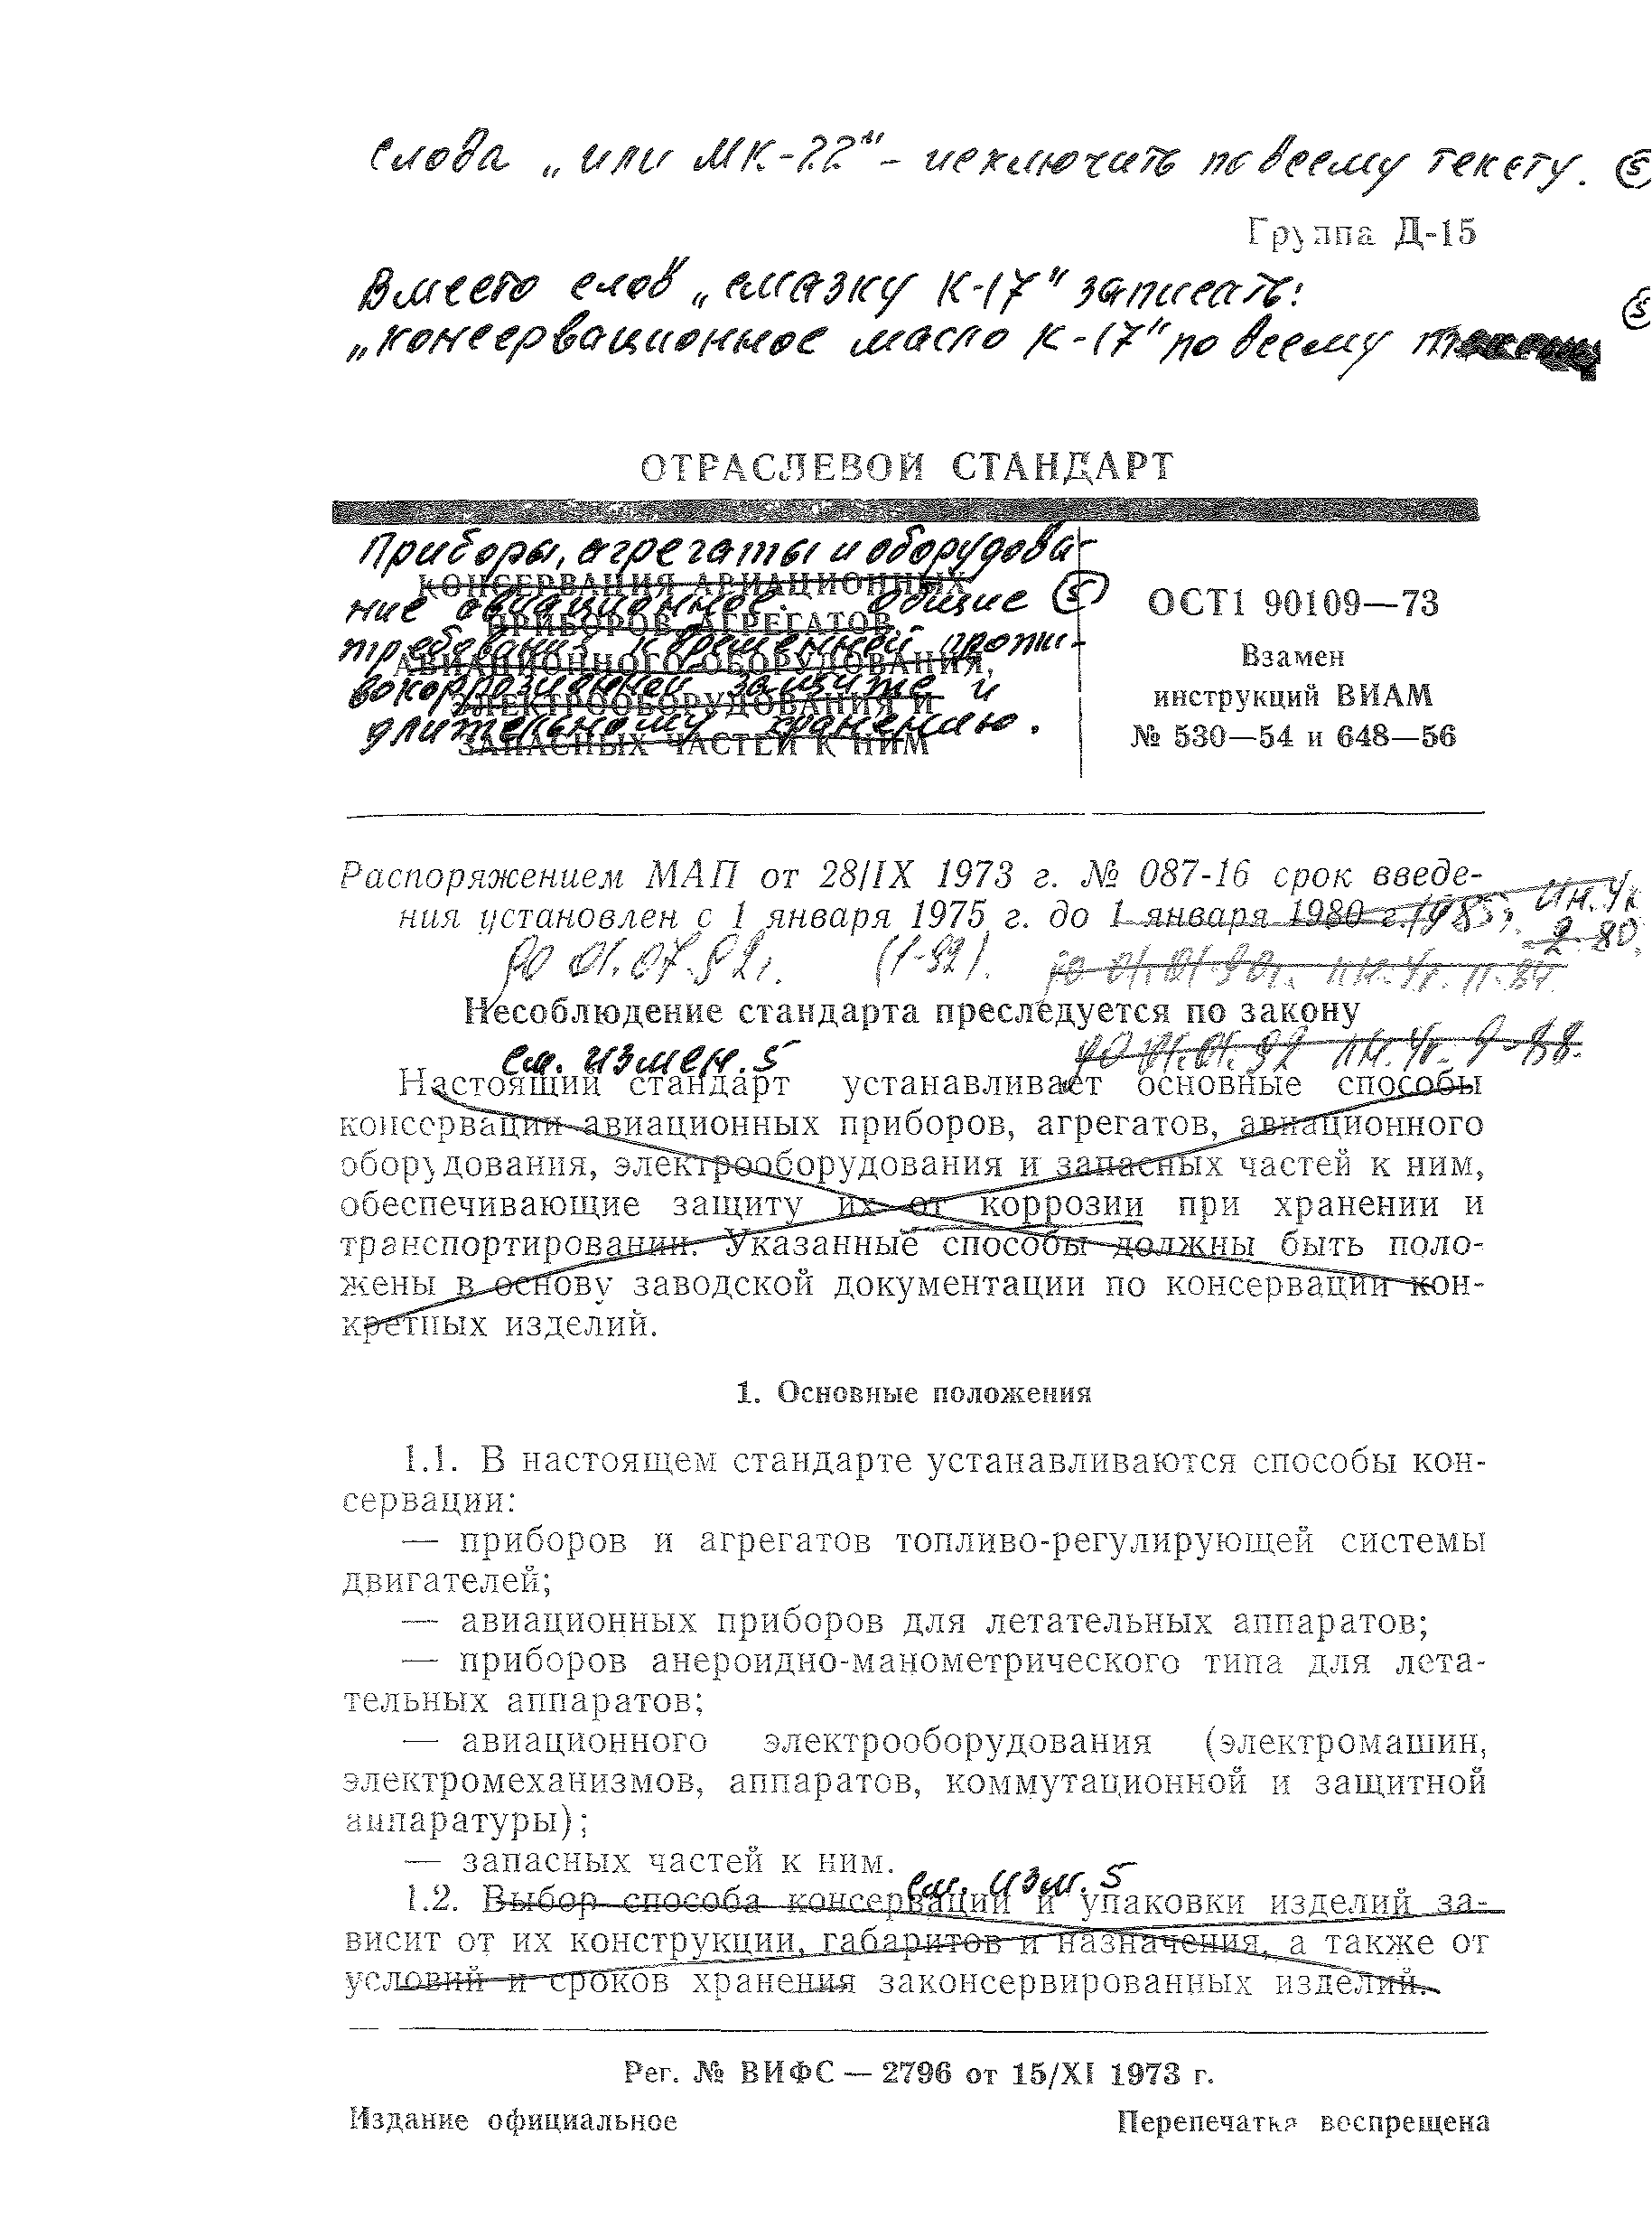 слова „или МК-22" - исключить по всему тексту. 5
Группа Д-15
Вместо слов „смазку К-17" записать:
„консервационное масло К-17" по всему 5
ОТРАСЛЕВОЙ СТАНДАРТ
Приборы, агрегаты и оборудова-
КОНСЕРВАЦИЯ АВИАЦИОННЫХ
ние авиационное. Общие 5
ПРИБОРОВ, АГРЕГАТОВ,
требования к временной проти-
АВИАЦИОННОГО ОБОРУДОВАНИЯ,
вокоррозионной защите и
ЭЛЕКТРООБОРУДОВАНИЯ И
длительному хранению.
ЗАПАСНЫХ ЧАСТЕЙ К НИМ
ОСТ1 90109—73
Взамен
инструкций ВИАМ
№ 530—54 и 648—56
Распоряжением МАП от 28/IX 1973 г. № 087-16 срок введе-
ния установлен с 1 января 1975 г. до 1 января 1980 г. 1985г. ин. ук. 2-80.
до 01.07.92г. (1-92). до 01.01.90г. ин. ук. 11-84.
Несоблюдение стандарта преследуется по закону
см. измен. 5 до 01.01.92 ин. ук. 9-88.
Настоящий стандарт устанавливает основные способы
консервации авиационных приборов, агрегатов, авиационного
оборудования, электрооборудования и запасных частей к ним,
обеспечивающие защиту их от коррозии при хранении и
транспортировании. Указанные способы должны быть поло-
жены в основу заводской документации по консервации кон-
кретных изделий.
1. Основные положения
1.1. В настоящем стандарте устанавливаются способы кон-
сервации:
— приборов и агрегатов топливо-регулирующей системы
двигателей;
— авиационных приборов для летательных аппаратов;
— приборов анероидно-манометрического типа для лета-
тельных аппаратов;
— авиационного электрооборудования (электромашин,
электромеханизмов, аппаратов, коммутационной и защитной
аппаратуры);
— запасных частей к ним.
см. изм. 5
1.2. Выбор способа консервации и упаковки изделий за-
висит от их конструкции, габаритов и назначения, а также от
условий и сроков хранения законсервированных изделий.
Рег. № ВИФС — 2796 от 15/XI 1973 г.
Издание официальное Перепечатка воспрещена